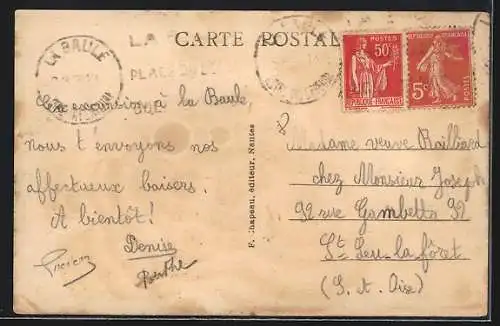 CARTE POSTALE
LA BAULE
LA
PLAGE
50c
POSTES
RÉPUBLIQUE FRANÇAISE
5c
POSTES
En excursion à la Baule,
nous t'envoyons nos
affectueux baisers.
A bientôt!
Denise
Lucien
Berthe
F. Chapeau, éditeur, Nantes
Madame veuve Bailliard
chez Monsieur Joseph
92 rue Gambetta 92
St Leu-la-fôret
(S. et Oise)